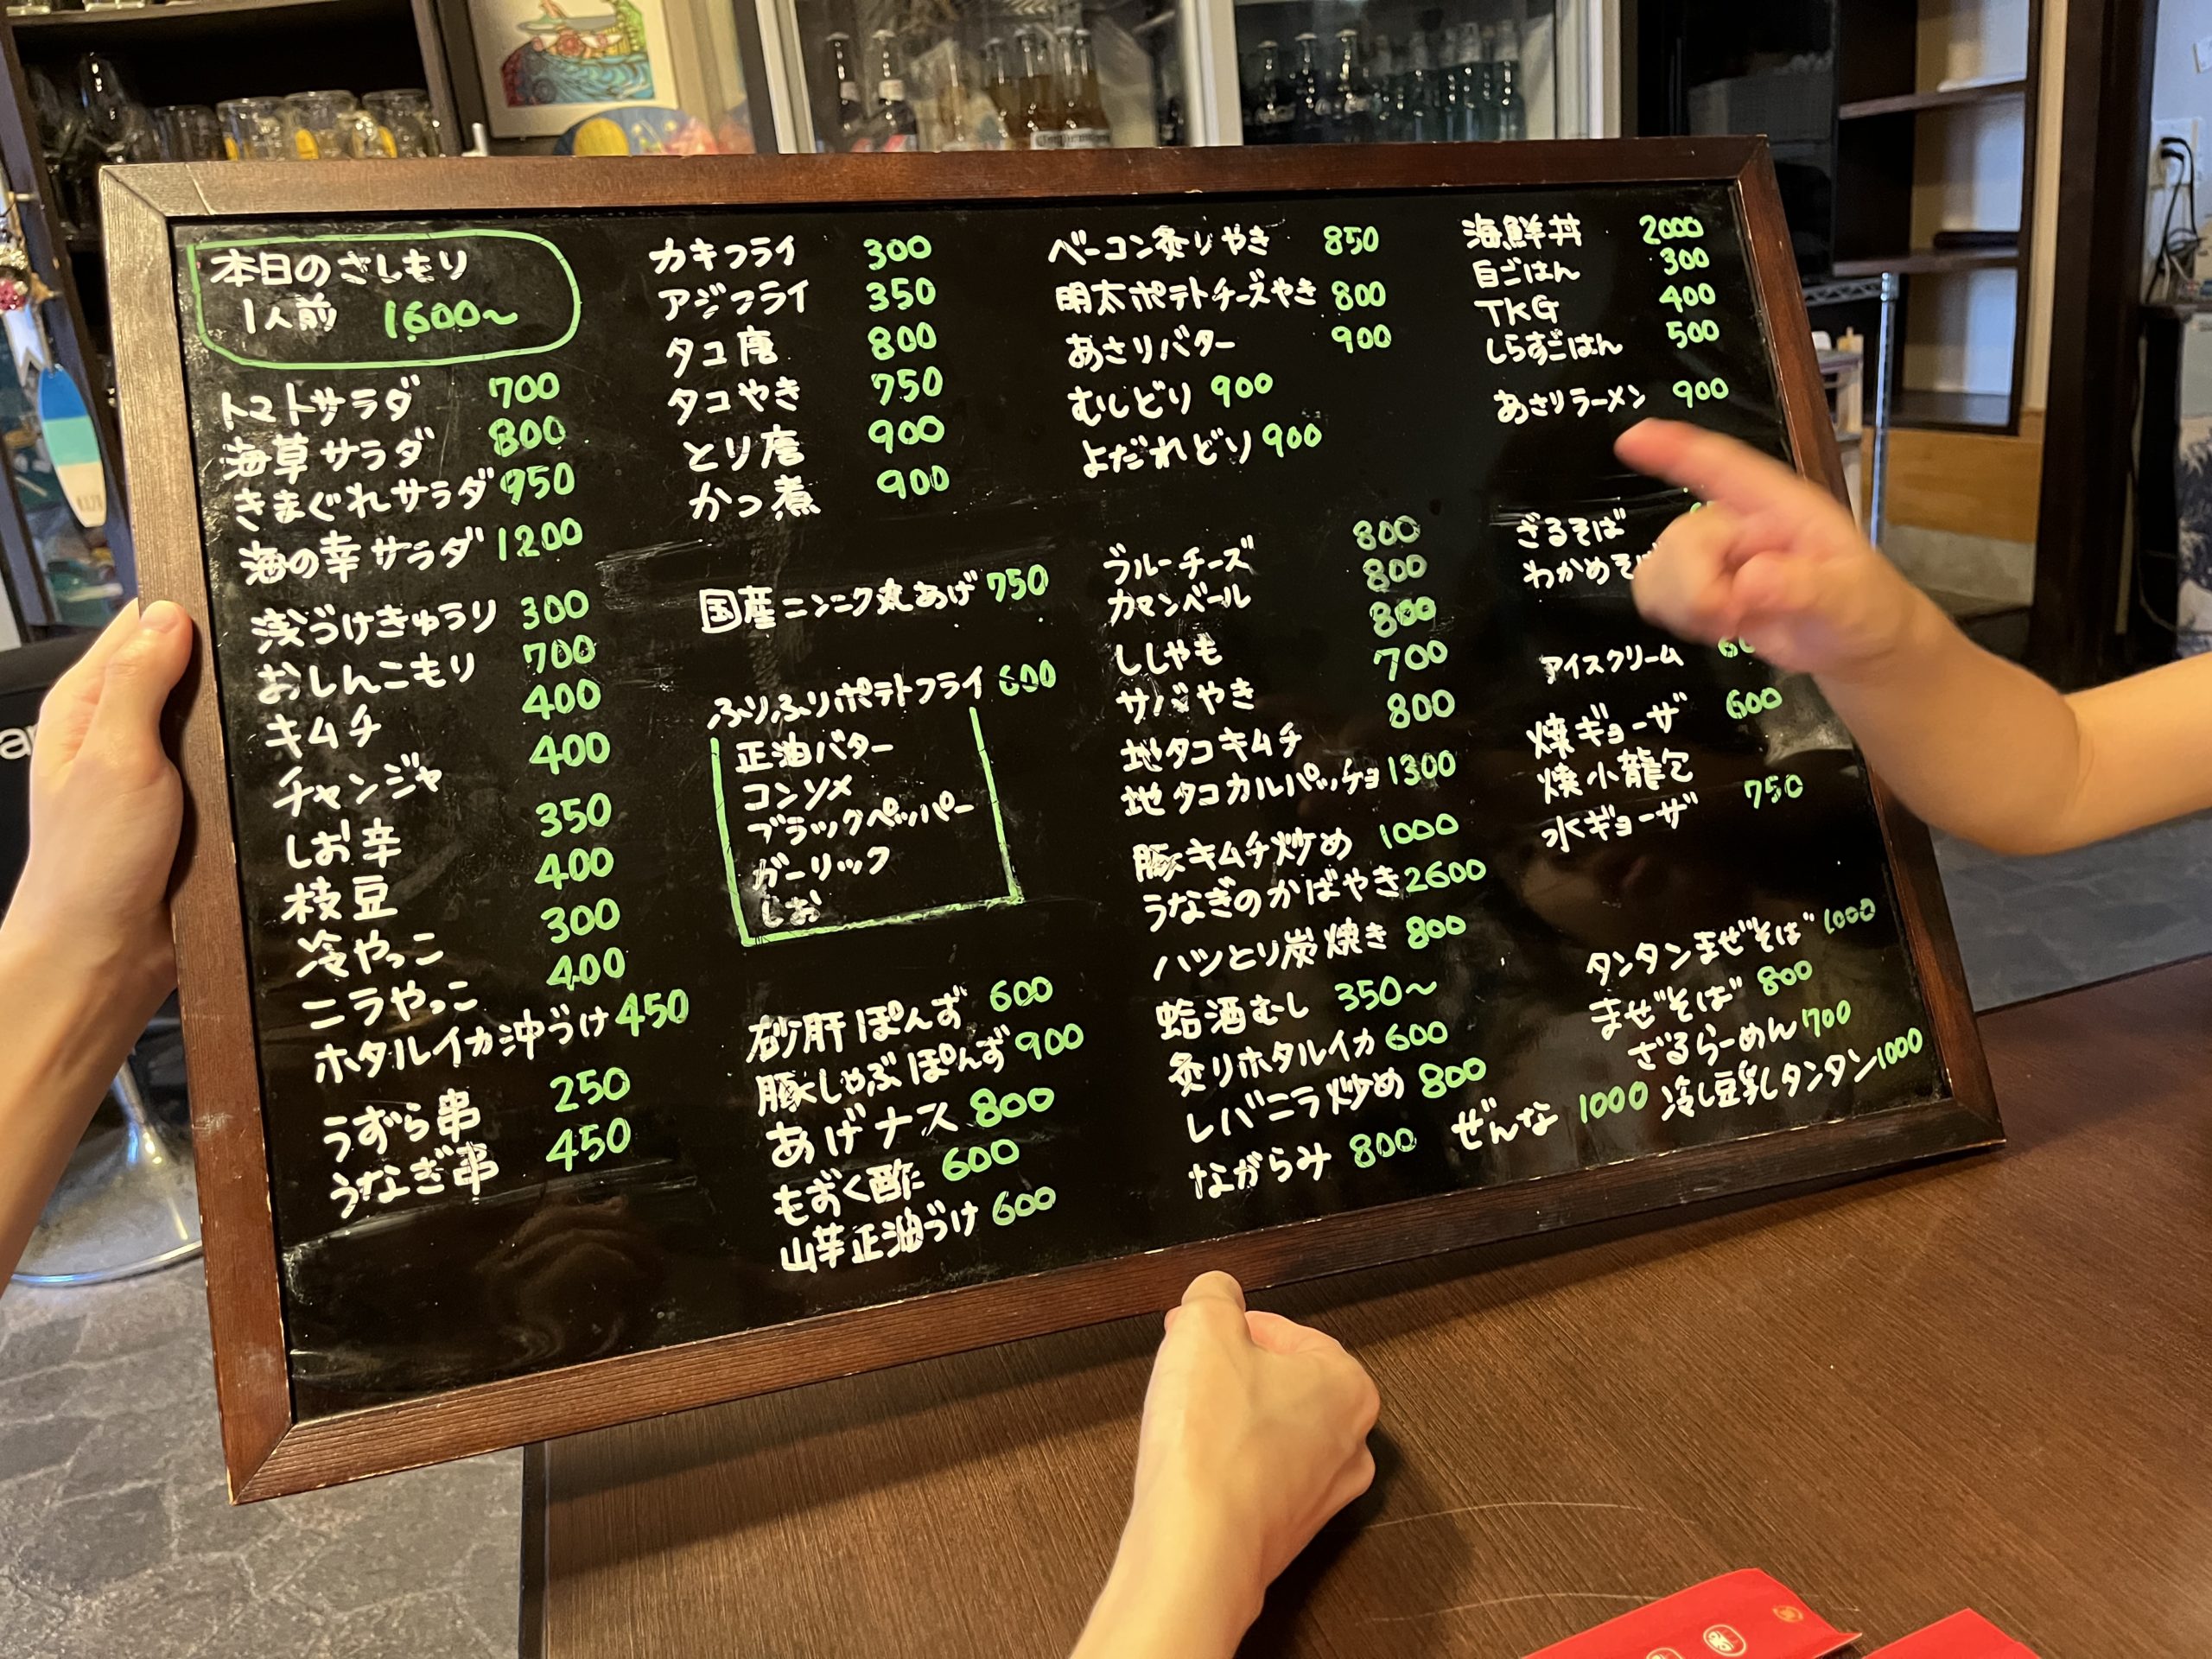 本日のさしもり
1人前 1600〜
トマトサラダ 700
海草サラダ 800
きまぐれサラダ 950
海の幸サラダ 1200
浅づけきゅうり 300
おしんこもり 700
キムチ 400
チャンジャ 400
しお辛 350
枝豆 400
冷やっこ 300
ニラやっこ 400
ホタルイカ沖づけ 450
うずら串 250
うなぎ串 450
カキフライ 300
アジフライ 350
タコ唐 800
タコやき 750
とり唐 900
かつ煮 900
国産ニンニク丸あげ 750
ふりふりポテトフライ 600
正油バター
コンソメ
ブラックペッパー
ガーリック
しお
砂肝ぽんず 600
豚しゃぶぽんず 900
あげナス 800
もずく酢 600
山芋正油づけ 600
ベーコン炙りやき 850
明太ポテトチーズやき 800
あさりバター 900
むしどり 900
よだれどり 900
ブルーチーズ 800
カマンベール 800
ししゃも 800
サバやき 700
地タコキムチ 800
地タコカルパッチョ 1300
豚キムチ炒め 1000
うなぎのかばやき 2600
ハツとり炭焼き 800
蛤酒むし 350〜
炙りホタルイカ 600
レバニラ炒め 800
ながらみ 800
ぜんな 1000
海鮮丼 2000
白ごはん 300
TKG 400
しらすごはん 500
あさりラーメン 900
ざるそば
わかめそば
アイスクリーム
焼ギョーザ 600
焼小籠包
水ギョーザ 750
タンタンまぜそば 1000
まぜそば 800
ざるらーめん 700
冷し豆乳しタンタン 1000